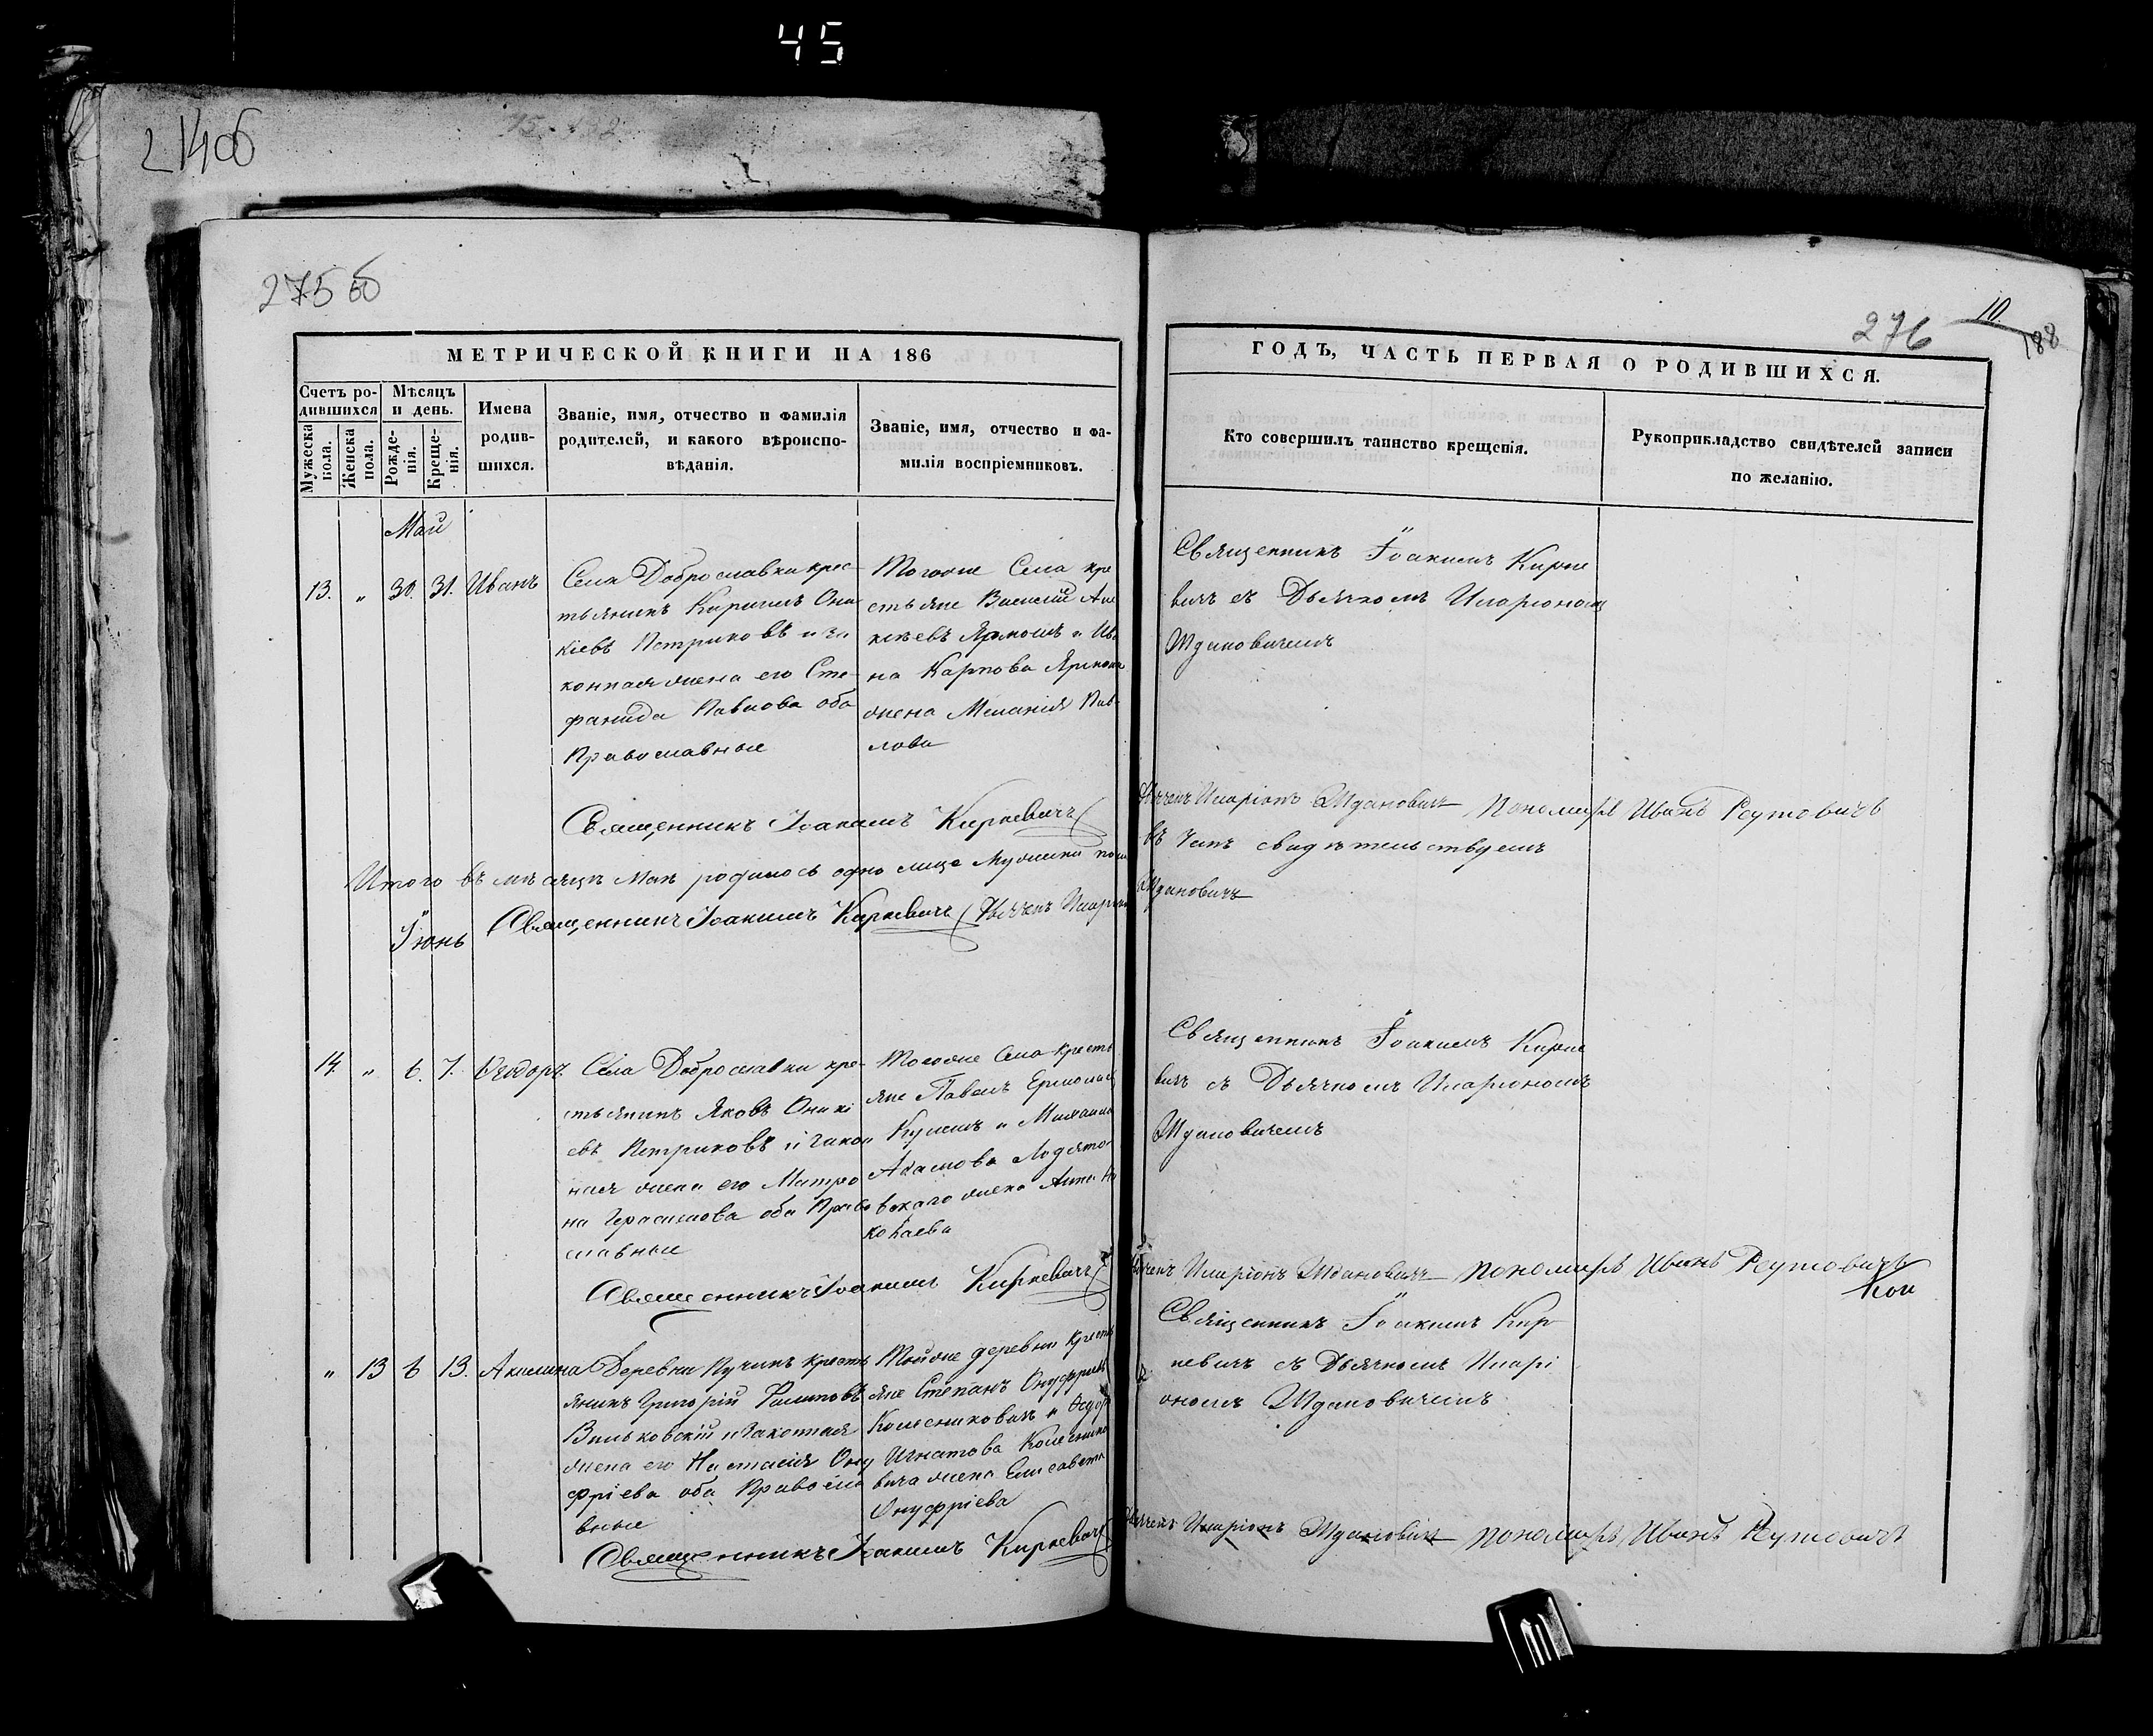 45
214 об
275 об
МЕТРИЧЕСКОЙ КНИГИ НА 186
Счетъ ро-
дившихся
Мужеска
пола.
Женска
пола.
Мѣсяцъ
и день.
Рожде-
нія.
Креще-
нія.
Имена
родив-
шихся.
Званіе, имя, отчество и фамилія
родителей, и какого вѣроиспо-
вѣданія.
Званіе, имя, отчество и фа-
милія воспріемниковъ.
Май
13. „ 30. 31. Иванъ
Села Доброславки крес-
тьянинъ Кирилъ Они
кіевъ Петриковъ и за
конная жена его Сте-
фанида Павлова оба
Православные
Тогоже Села кре
стьяне Василій
Ярмошъ и Ив
на Карпова
жена Меланія Пав-
лова
Священникъ Іоакимъ Киркевичъ
Итого въ мѣсяцѣ Маѣ родилось одно лице Мужеска пола
Священникъ Іоакимъ Киркевичъ Дьячекъ Иларіонъ
Іюнь
14. „ 6. 7. Ѳеодоръ.
Села Доброславки кре-
стьянинъ Яковъ Оникі
евъ Петриковъ и закон
ная жена его Матро
на Герасимова оба Право
славные
Тогоже Села кресть
яне Павелъ
и
Адамова
жена Анна
Священникъ Іоакимъ Киркевичъ
„ 13 6 13. Акилина
Деревни Пучинъ кресть
янинъ Григорій Филиповъ
Вильковскій и законная
жена его Настасія Ону
фріева оба Правосла
вные
Тойже деревни кресть
яне Степанъ Онуфріевъ
Колесниковичъ и Ѳедора
Игнатова Колеснико
вича жена Елисавета
Онуфріева
Священникъ Іоакимъ Киркевичъ
276
10
188
ГОДЪ, ЧАСТЬ ПЕРВАЯ О РОДИВШИХСЯ.
Кто совершилъ таинство крещенія.
Рукоприкладство свидѣтелей записи
по желанію.
Священникъ Іоакимъ Кирке
вичъ съ Дьячкомъ Иларіономъ
Ждановичемъ
Дьячекъ Иларіонъ Ждановичъ Пономарь Иванъ Реутовичъ
въ чемъ свидѣтельствуемъ
Ждановичъ
Священникъ Іоакимъ Кирке
вичъ съ Дьячкомъ Иларіономъ
Ждановичемъ
Дьячекъ Иларіонъ Ждановичъ Пономарь Иванъ Реутовичъ
Священникъ Іоакимъ Кир
кевичъ съ Дьячкомъ Иларі
ономъ Ждановичемъ
Дьячекъ Иларіонъ Ждановичъ Пономарь Иванъ Реутовичъ